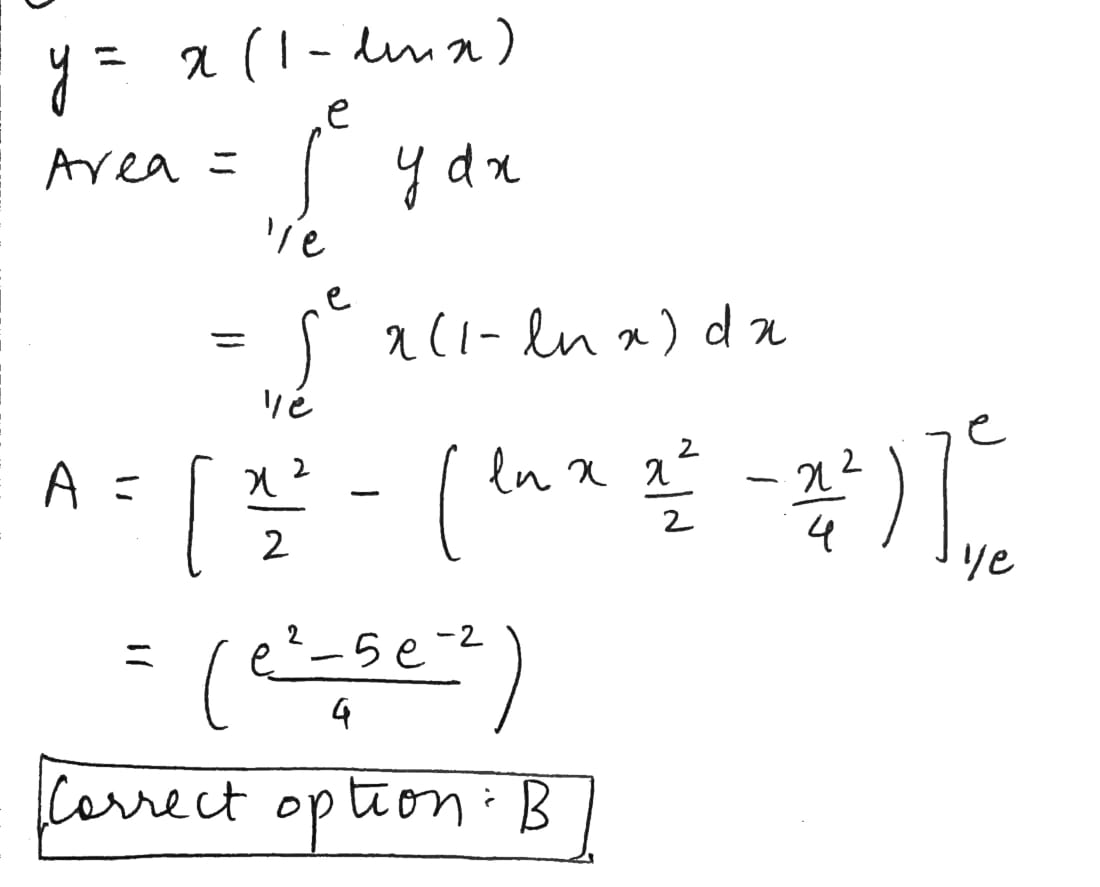 y = x (1 - ln x)
Area = ∫_{1/e}^{e} y dx
= ∫_{1/e}^{e} x(1 - ln x) dx
A = [ x²/2 - ( ln x x²/2 - x²/4 ) ]_{1/e}^{e}
= ( (e² - 5e⁻²)/4 )
Correct option : B